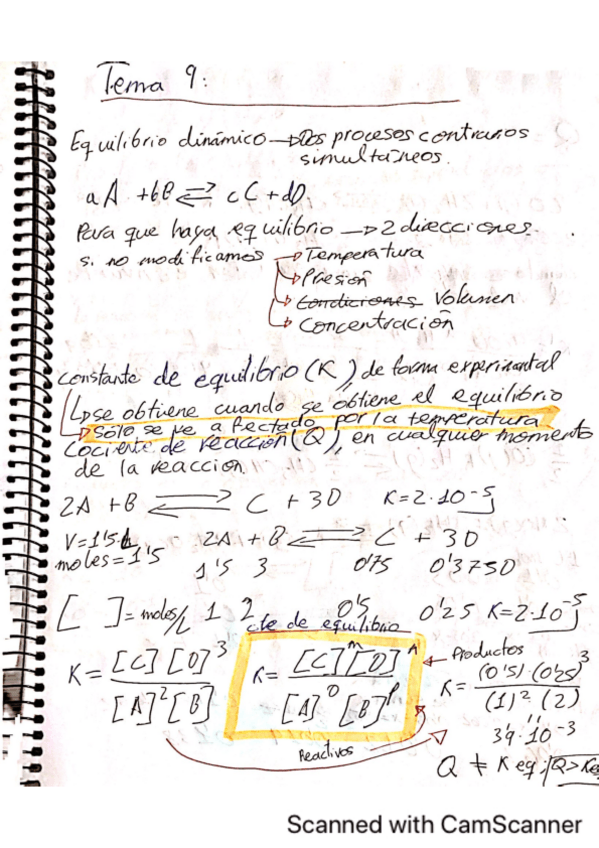 Tema 9:
Equilibrio dinámico → Dos procesos contrarios
simultáneos.
aA + bB ⇌ cC + dD
Para que haya equilibrio → 2 direcciones.
si no modificamos → Temperatura
→ Presión
→ Condiciones Volumen
→ Concentración
constante de equilibrio (K), de forma experimental
↳ se obtiene cuando se obtiene el equilibrio
→ Sólo se ve afectado por la temperatura
Cociente de reacción (Q), en cualquier momento
de la reacción
2A + B ⇌ C + 3D K = 2·10⁻⁵
V = 1'5 L 2A + B ⇌ C + 3D
moles = 1'5 1'5 3 0'75 0'3750
[ ] = moles/L 1 2 0'5 0'25 K = 2·10⁻⁵
cte de equilibrio
K = [C][D]³ / [A]²[B] K = [C]ᵐ[D]ⁿ / [A]º[B]ᵖ ← Productos K = (0'5)·(0'25)³ / (1)²(2)
Reactivos
3'9·10⁻³
Q ≠ K eq. Q > Ke
Scanned with CamScanner